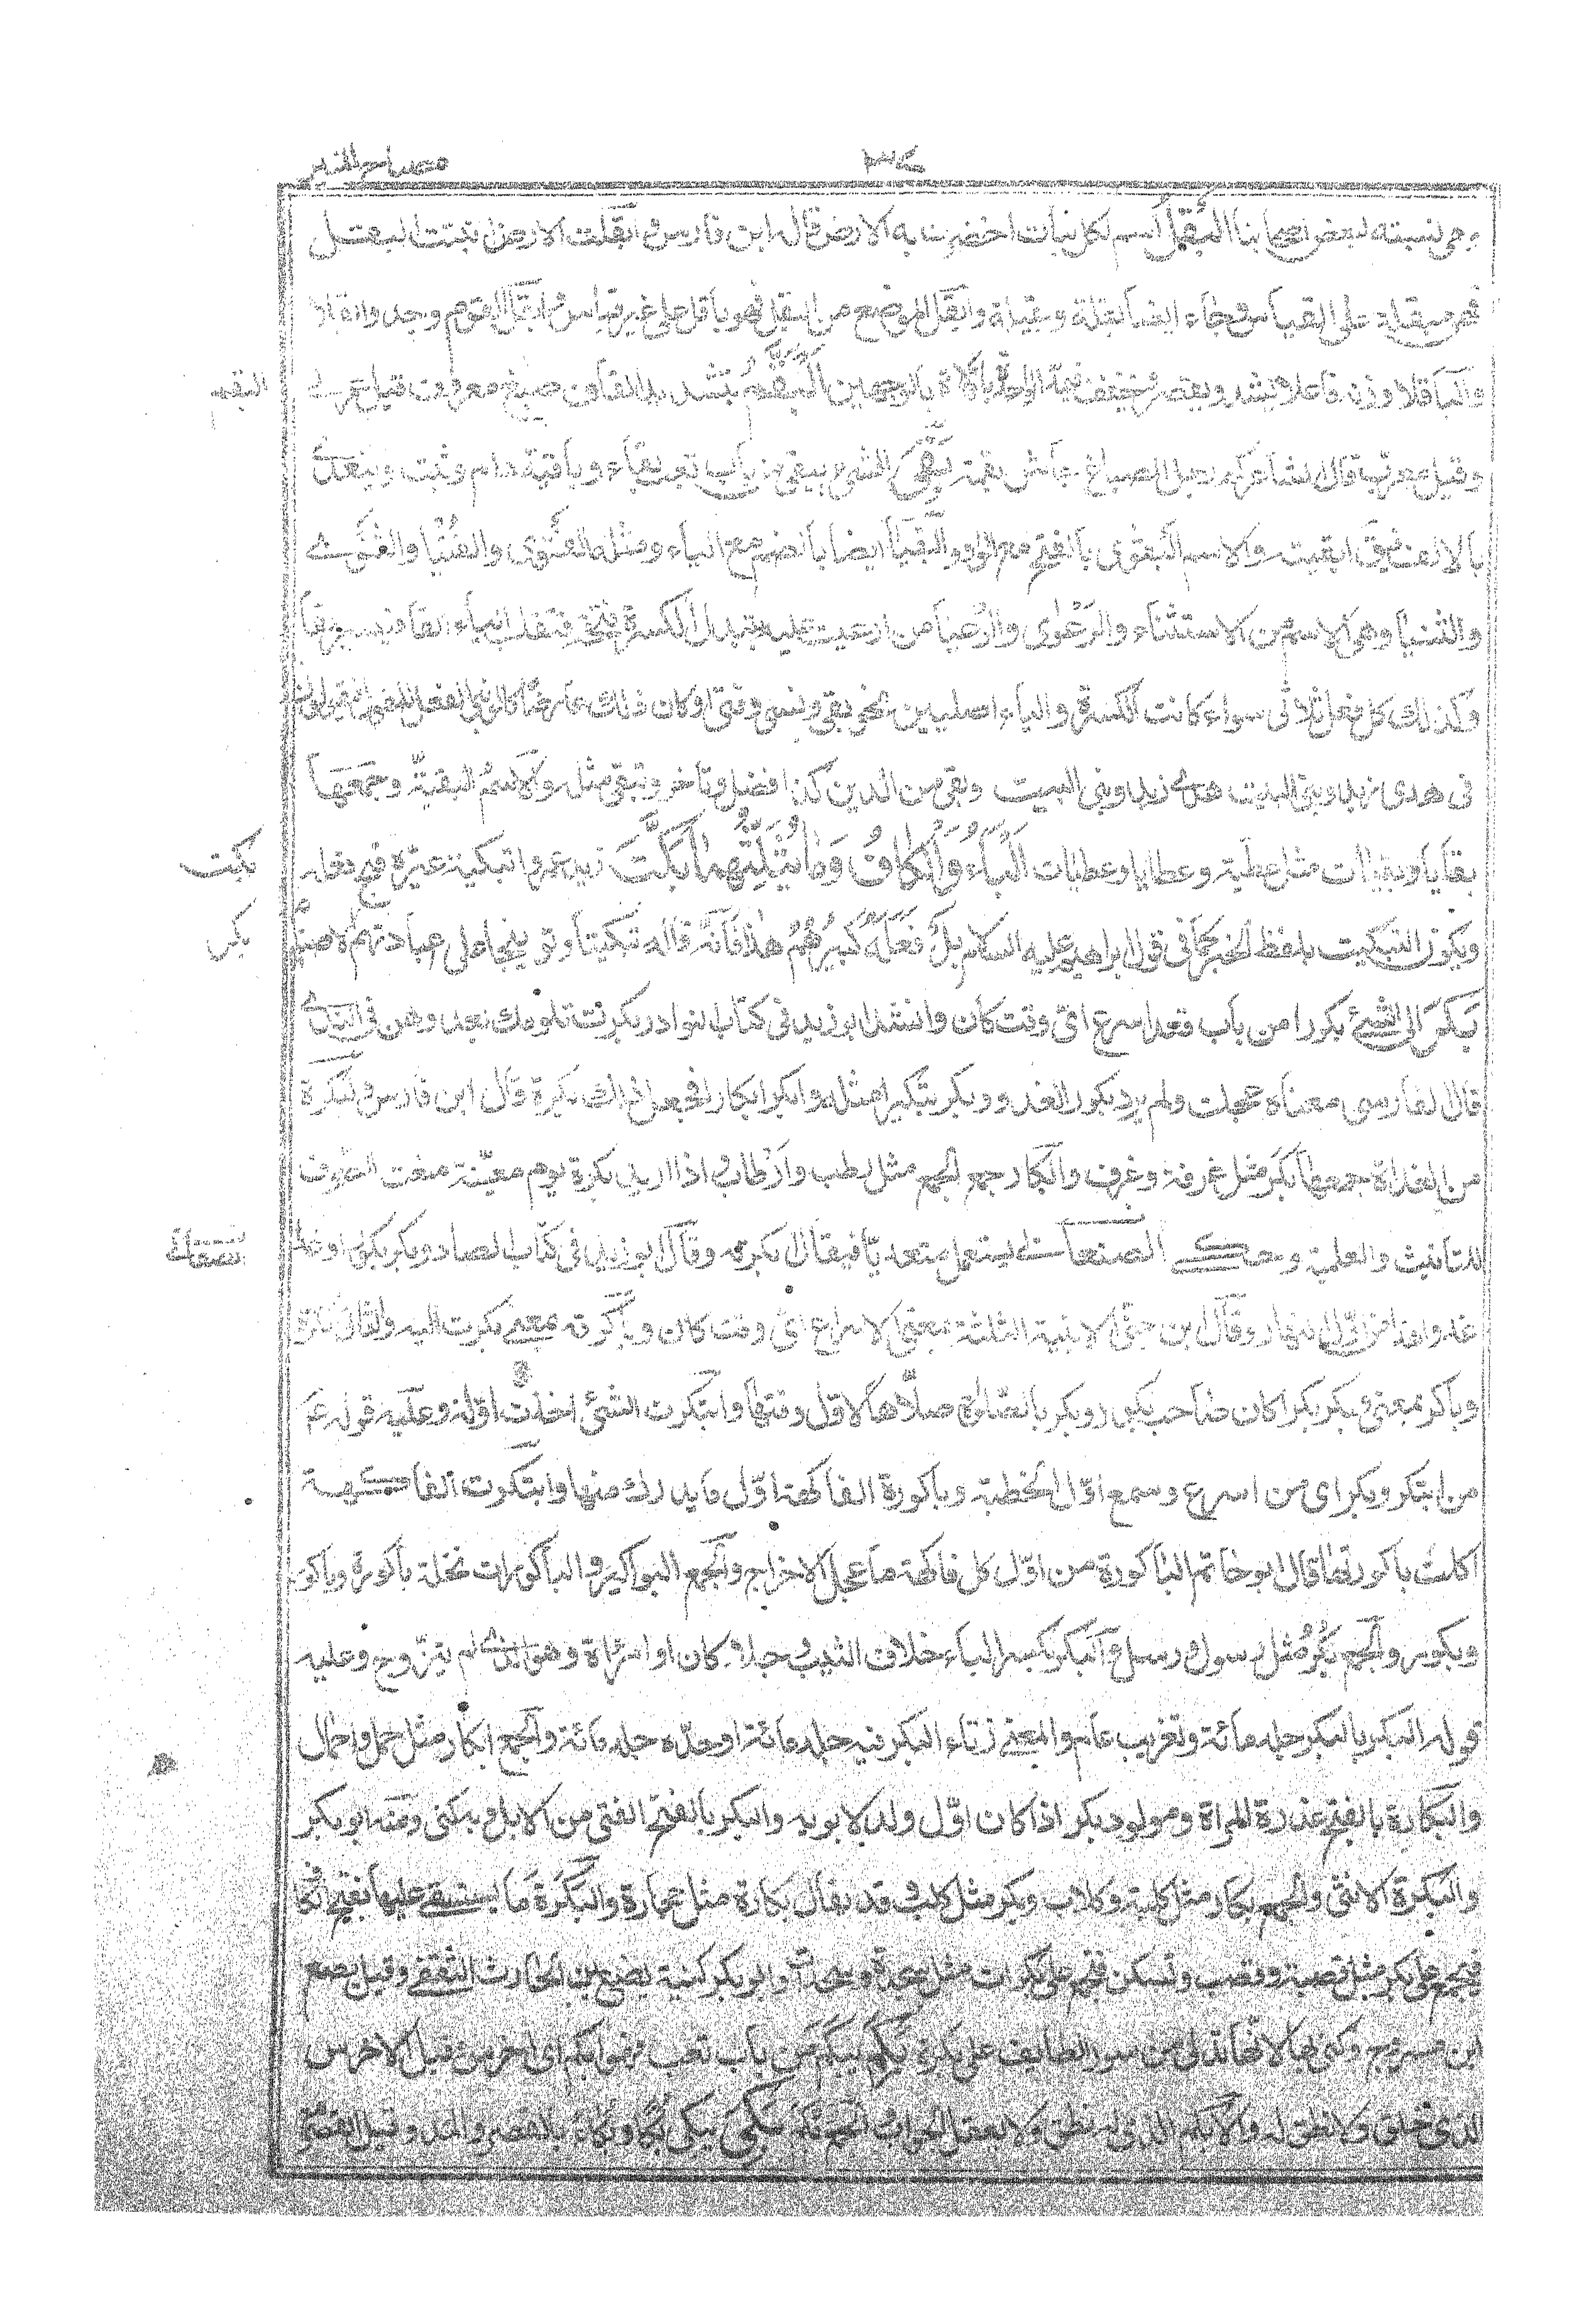 مصباح المنير
٣٤
وهي نسبة لبعض اصحابنا البقل اسم لكل نبات اخضرت به الارض قال ابن فارس وابقلت الارض انبتت البقل
فهي مبقلة على القياس وجاء ايضا بقلة وبقيلة وابقل الموضع من البقل فهو باقل على غير قياس وابقل القوم وجدوا بقلا
والباقلا وزنه فاعلا يشدد ويقصر ويخفف فيمد الواحدة باقلاة بالوجهين البقم بتشديد القاف صبغ معروف قيل عربي
البقم
وقيل معرب قال الشاعر كمرجل الصباغ جاش بقمه بقي الشيء يبقى من باب تعب بقاء وباقية دام وثبت ويتعدى
بالالف فيق ابقيته والاسم البقوى بالفتح مع الواو والبقيا ايضا بالضم مع الياء ومثله الفتوى والفتيا والثنوى
والثنيا وهي الاسم من الاستثناء والرعوى والرعيا من ارعيت عليه تبدل الكسرة فتحة فتقلب الياء الفا فيصير بقا
وكذلك كل فعل ثلاثي سواء كانت الكسرة والياء اصليين نحو بقي ونسي وفني او كان ذلك عارضا كالمبني للمفعول فيقولون
في هدي زيد وبني البيت هدى زيد وبنى البيت وبقي من الدين كذا فضل وتأخر وتبقى مثله والاسم البقية وجمعها
بقايا وبقيات مثل عطية وعطايا وعطيات الباء والكاف وما يثلثهما بكت زيد عمروا تبكيتا عيره قبح فعله
بكت
ويكون التبكيت بلفظ الخبر كما في قول ابراهيم عليه السلام بل فعله كبيرهم هذا فانه قاله تبكيتا وتوبيخا على عبادتهم الاصنام
بكر
بكر الى الشئ بكورا من باب قعد اسرع اي وقت كان وانشد ابو زيد في كتاب النوادر بكرت تلومك بعد وهن في الندى
قال الفارسي معناه عجلت ولم يرد بكور الغدو وبكر تبكيرا مثله وابكر ابكارا فعل ذلك بكرة قال ابن فارس والبكرة
من الغداة جمعها بكر مثل غرفة وغرف وابكار جمع الجمع مثل رطب وارطاب واذا اريد بكرة يوم معينة منعت الصرف
للتأنيث والعلمية وحكى الصنعاني يستعمل متعديا فيقال بكرته وقال ابو زيد في كتاب المصادر بكر بكورا وغدا
الصنعاني
غدوا هذا من اول النهار وقال ابن جني الابنية الثلثة بمعنى الاسراع اي وقت كان وباكرته بمعنى بكرت اليه
وباكر بمعنى وبكر بكرا كان صاحب بكور وبكر بالصلوة صلاها لاول وقتها وابتكرت الشئ اخذت اوله وعليه قوله عم
من ابتكر وبكر اي من اسرع وسمع اول الخطبة وباكورة الفاكهة اول ما يدرك منها وابتكرت الفاكهة
اكلت باكورتها قال ابو حاتم الباكورة من اول كل فاكهة ما عجل الاخراج والجمع البواكير والباكورات نخلة باكورة وباكور
وبكور والجمع بكر مثل رسول ورسل والبكر بكسر الباء خلاف الثيب رجلا كان او امراة وهو الذي لم يتزوج وعليه
قوله البكر بالبكر جلد مائة وتغريب عام والمعنى زناء البكر فيه جلد مائة او حده جلد مائة والجمع ابكار مثل حمل واحمال
والبكارة بالفتح عذرة المراة ومولود بكر اذا كان اول ولد لابويه والبكر بالفتح الفتي من الابل وبه كني ومنه ابو بكر
والبكرة الانثى والجمع بكار مثل كلبة وكلاب وبكر مثل كلب وقد يقال بكارة مثل حجارة والبكرة ما يستقى عليها بفتح الكاف
فيجمع على بكر مثل قصبة وقصب وتسكن فتجمع على بكرات مثل سجدة وسجدات وابو بكر كنية نفيع بن الحارث الثقفي وقيل نفيع
ابن مسروح وكني بها لانه تدلى من سور الطايف على بكرة بكم يبكم من باب تعب فهو ابكم اي اخرس وقيل الاخرس
الذي خلق ولا نطق له والابكم الذي له نطق ولا يعقل الجواب والجمع بكم بكى يبكي بكا وبكاء بالقصر والمد وقيل القصر